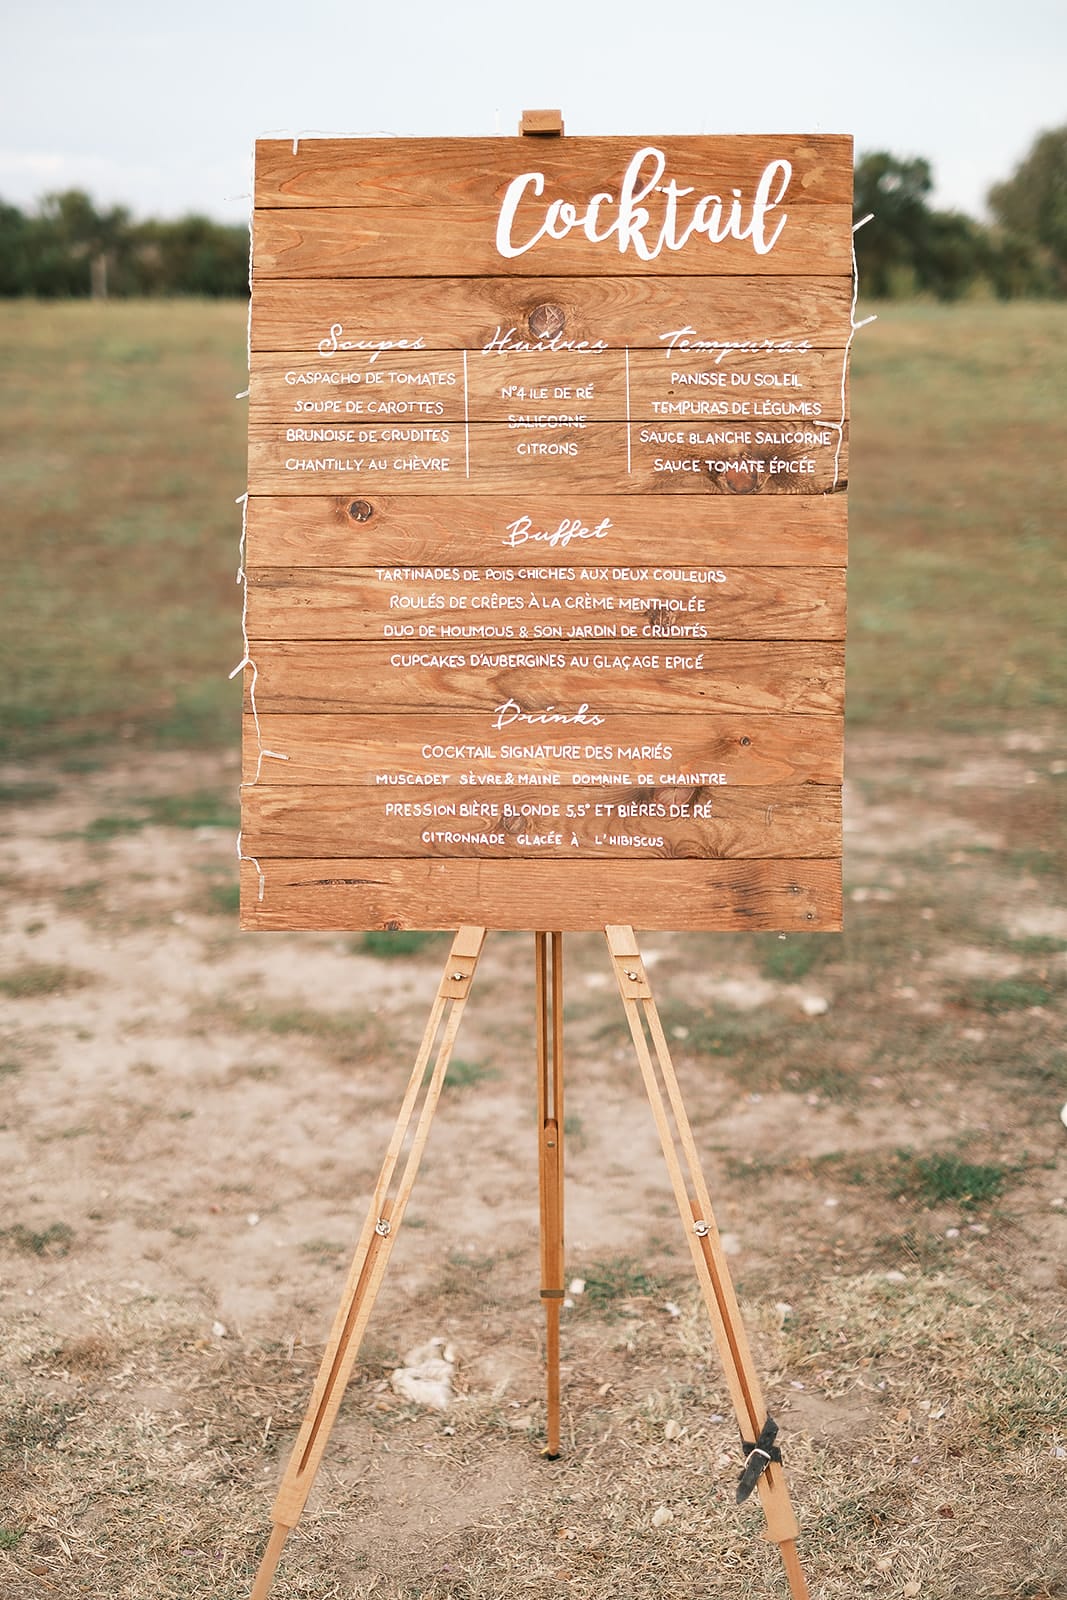 Cocktail
Soupes
GASPACHO DE TOMATES
SOUPE DE CAROTTES
BRUNOISE DE CRUDITES
CHANTILLY AU CHÈVRE
Huîtres
N°4 ILE DE RÉ
SALICORNE
CITRONS
Tempuras
PANISSE DU SOLEIL
TEMPURAS DE LÉGUMES
SAUCE BLANCHE SALICORNE
SAUCE TOMATE ÉPICÉE
Buffet
TARTINADES DE POIS CHICHES AUX DEUX COULEURS
ROULÉS DE CRÊPES À LA CRÈME MENTHOLÉE
DUO DE HOUMOUS & SON JARDIN DE CRUDITÉS
CUPCAKES D'AUBERGINES AU GLAÇAGE EPICÉ
Drinks
COCKTAIL SIGNATURE DES MARIÉS
MUSCADET SÈVRE & MAINE DOMAINE DE CHAINTRE
PRESSION BIÈRE BLONDE 5,5° ET BIÈRES DE RÉ
CITRONNADE GLACÉE À L'HIBISCUS